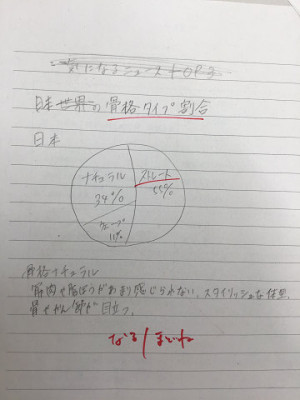 気になるニュースTOP3
日本 世界の骨格タイプ割合
日本
ナチュラル
34%
ストレート
55%
ウェーブ
11%
骨格ナチュラル
筋肉や脂肪があまり感じられない、スタイリッシュな体型。
骨や 関節が目立つ。
なる/まいね